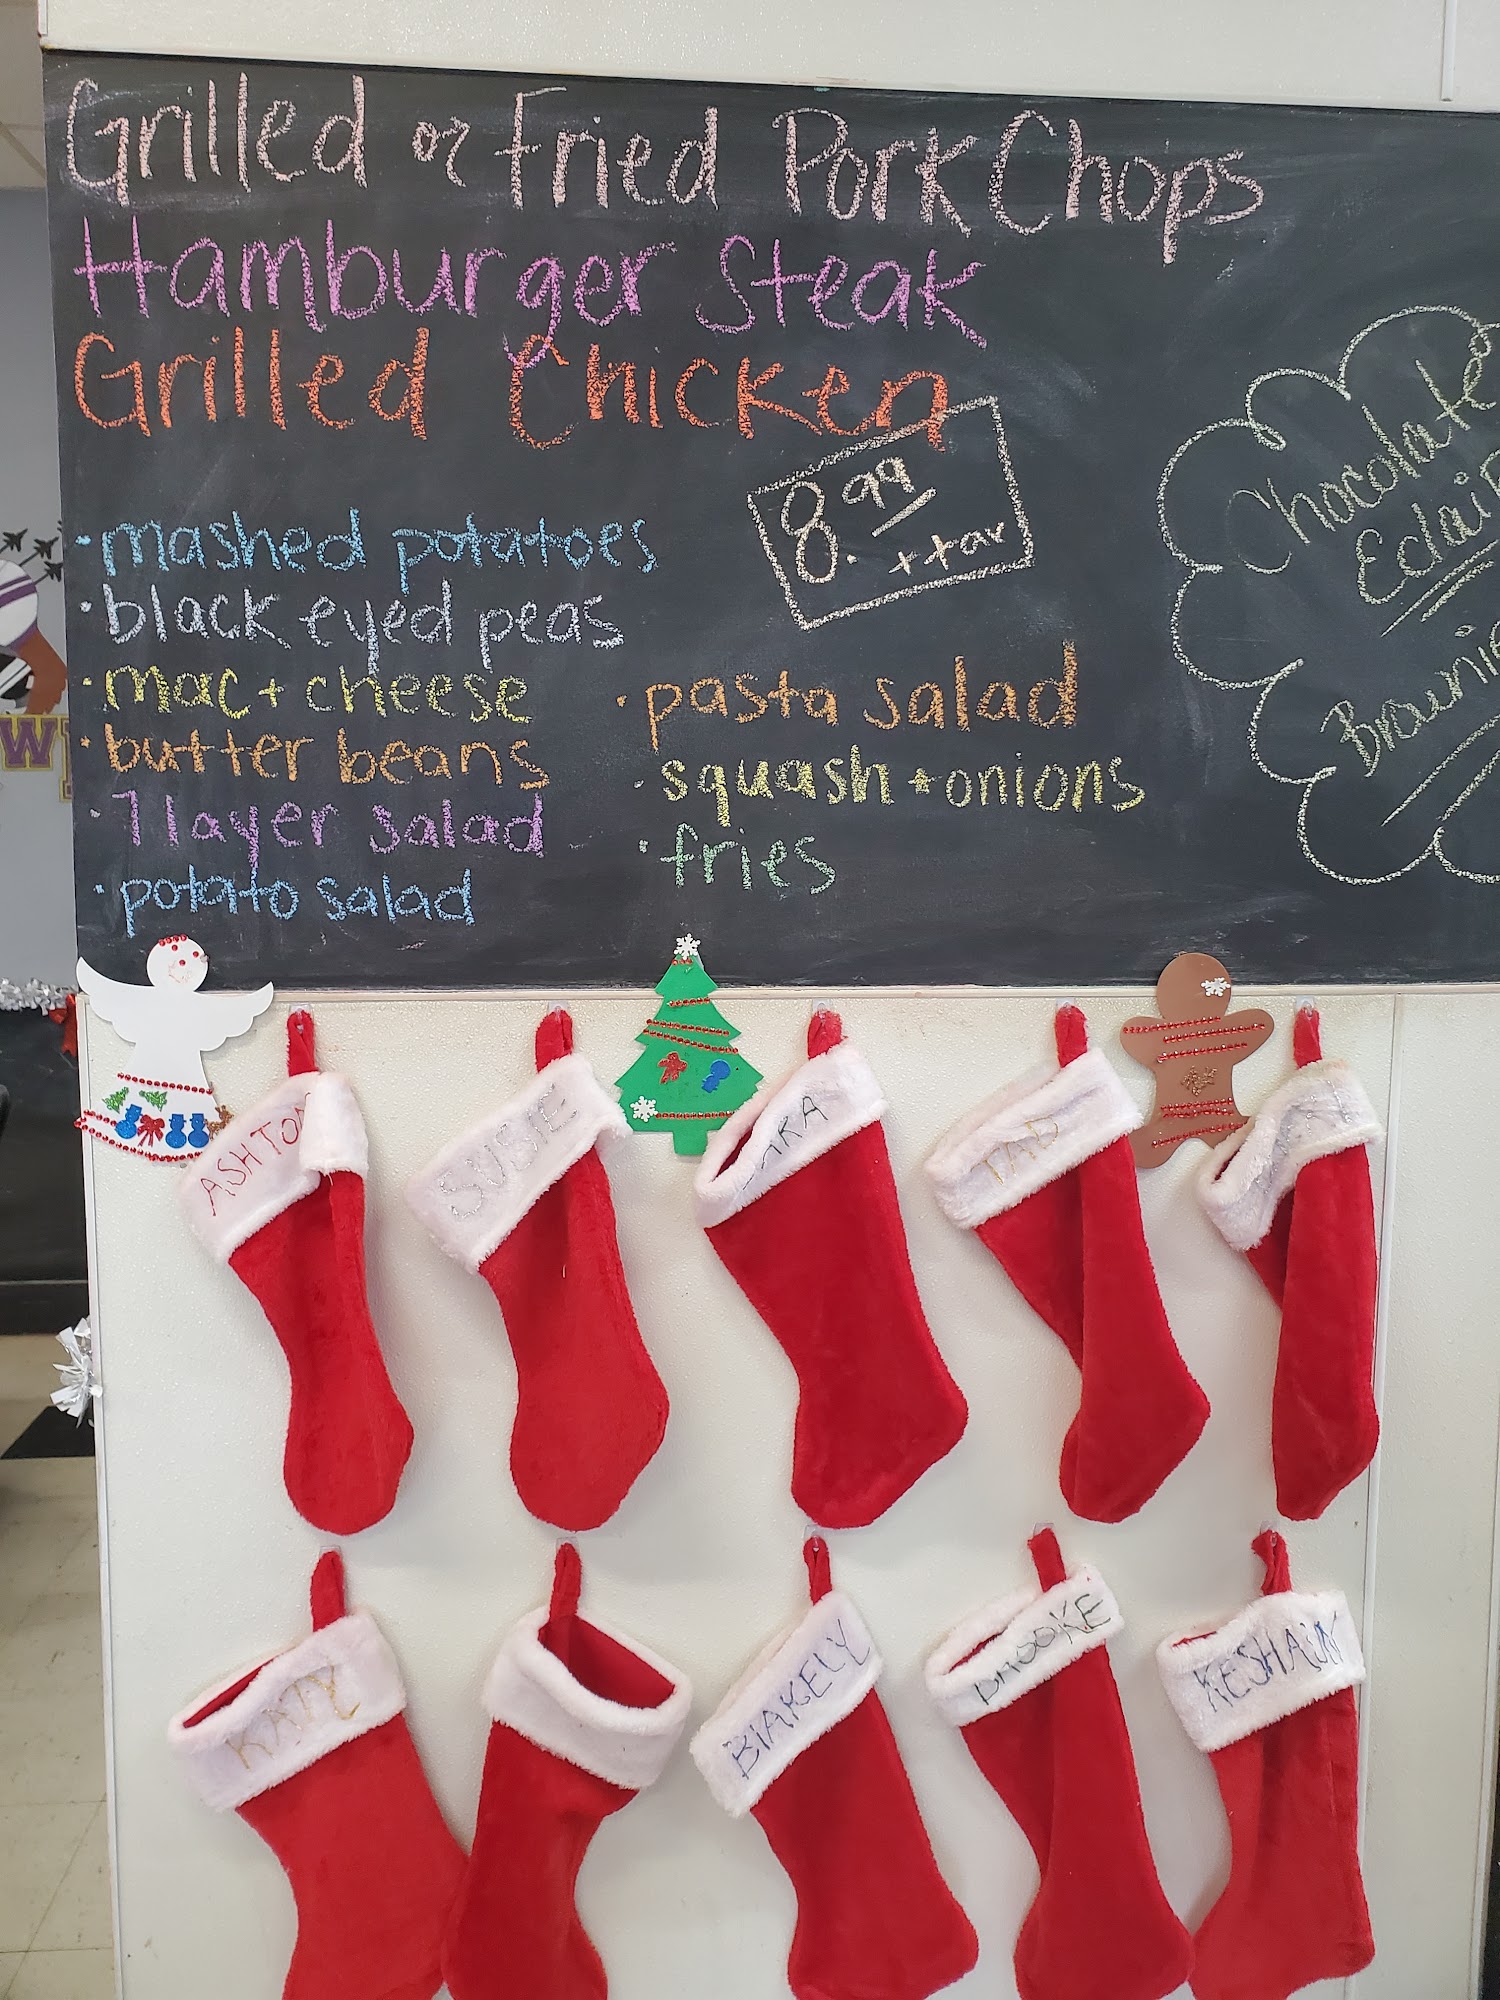 Grilled or Fried Pork Chops
Hamburger Steak
Grilled Chicken
8.99
+tax
• mashed potatoes
• black eyed peas
• mac + cheese
• butter beans
• 7 layer salad
• potato salad
• pasta salad
• squash + onions
• fries
Chocolate
Eclair
Brownie
W
ASHTON
SUSIE
TAD
KATY
BlAKELY
BROOKE
KESHAUN